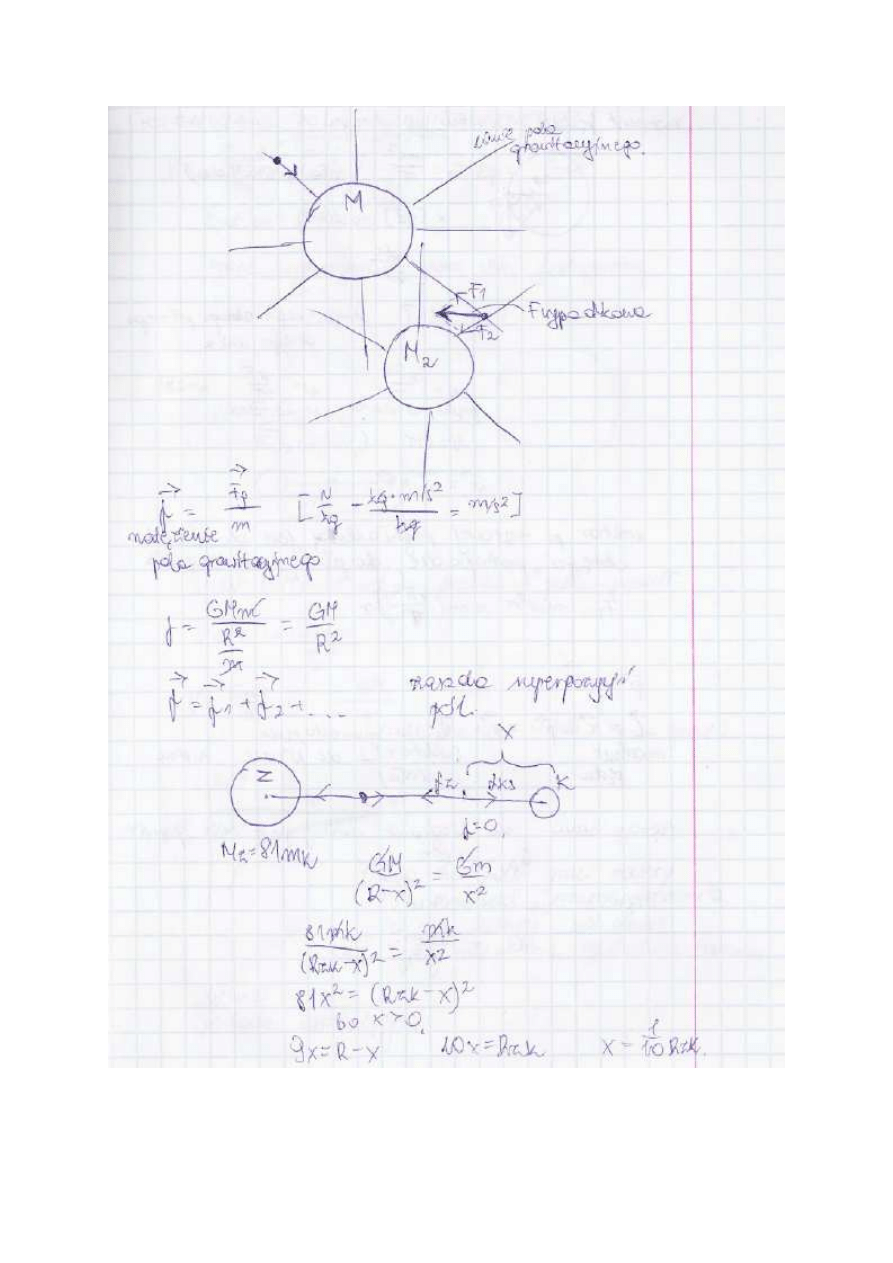 linie pola
grawitacyjnego.
M
F1
Fwypadkowa
F2
M2
γ⃗ = F⃗g / m [N/kg = kg·m/s² / kg = m/s²]
natężenie
pola grawitacyjnego
γ = (GMm/R²)/m = GM/R²
γ⃗ = γ⃗1 + γ⃗2 + ... zasada superpozycji
pól.
X
Z γz γks K
γ=0.
Mz=81mk
GM/(R-x)² = Gm/x²
81mk/(Rzk-x)² = mk/x²
81x² = (Rzk-x)²
bo x>0.
9x=R-x 10x=Rzk x = 1/10 Rzk.